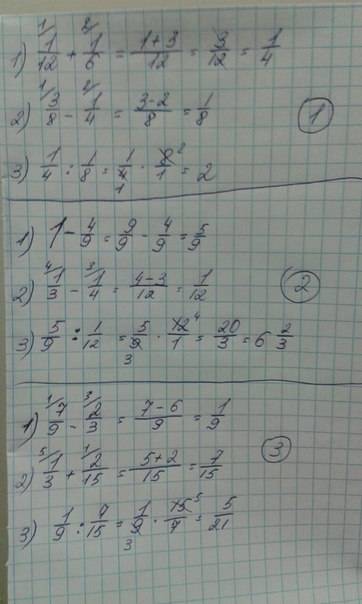 1) ¹/1/12 + ²/1/6 = (1+3)/12 = 3/12 = 1/4
2) ¹/3/8 - ²/1/4 = (3-2)/8 = 1/8
1
3) 1/4 : 1/8 = 1/4 1 · 8/1 2 = 2
1) 1 - 4/9 = 9/9 - 4/9 = 5/9
2) ⁴/1/3 - ³/1/4 = (4-3)/12 = 1/12
2
3) 5/9 : 1/12 = 5/9 3 · 12/1 4 = 20/3 = 6 2/3
1) ¹/7/9 - ³/2/3 = (7-6)/9 = 1/9
3
2) ⁵/1/3 + ¹/2/15 = (5+2)/15 = 7/15
3) 1/9 : 7/15 = 1/9 3 · 15/7 5 = 5/21